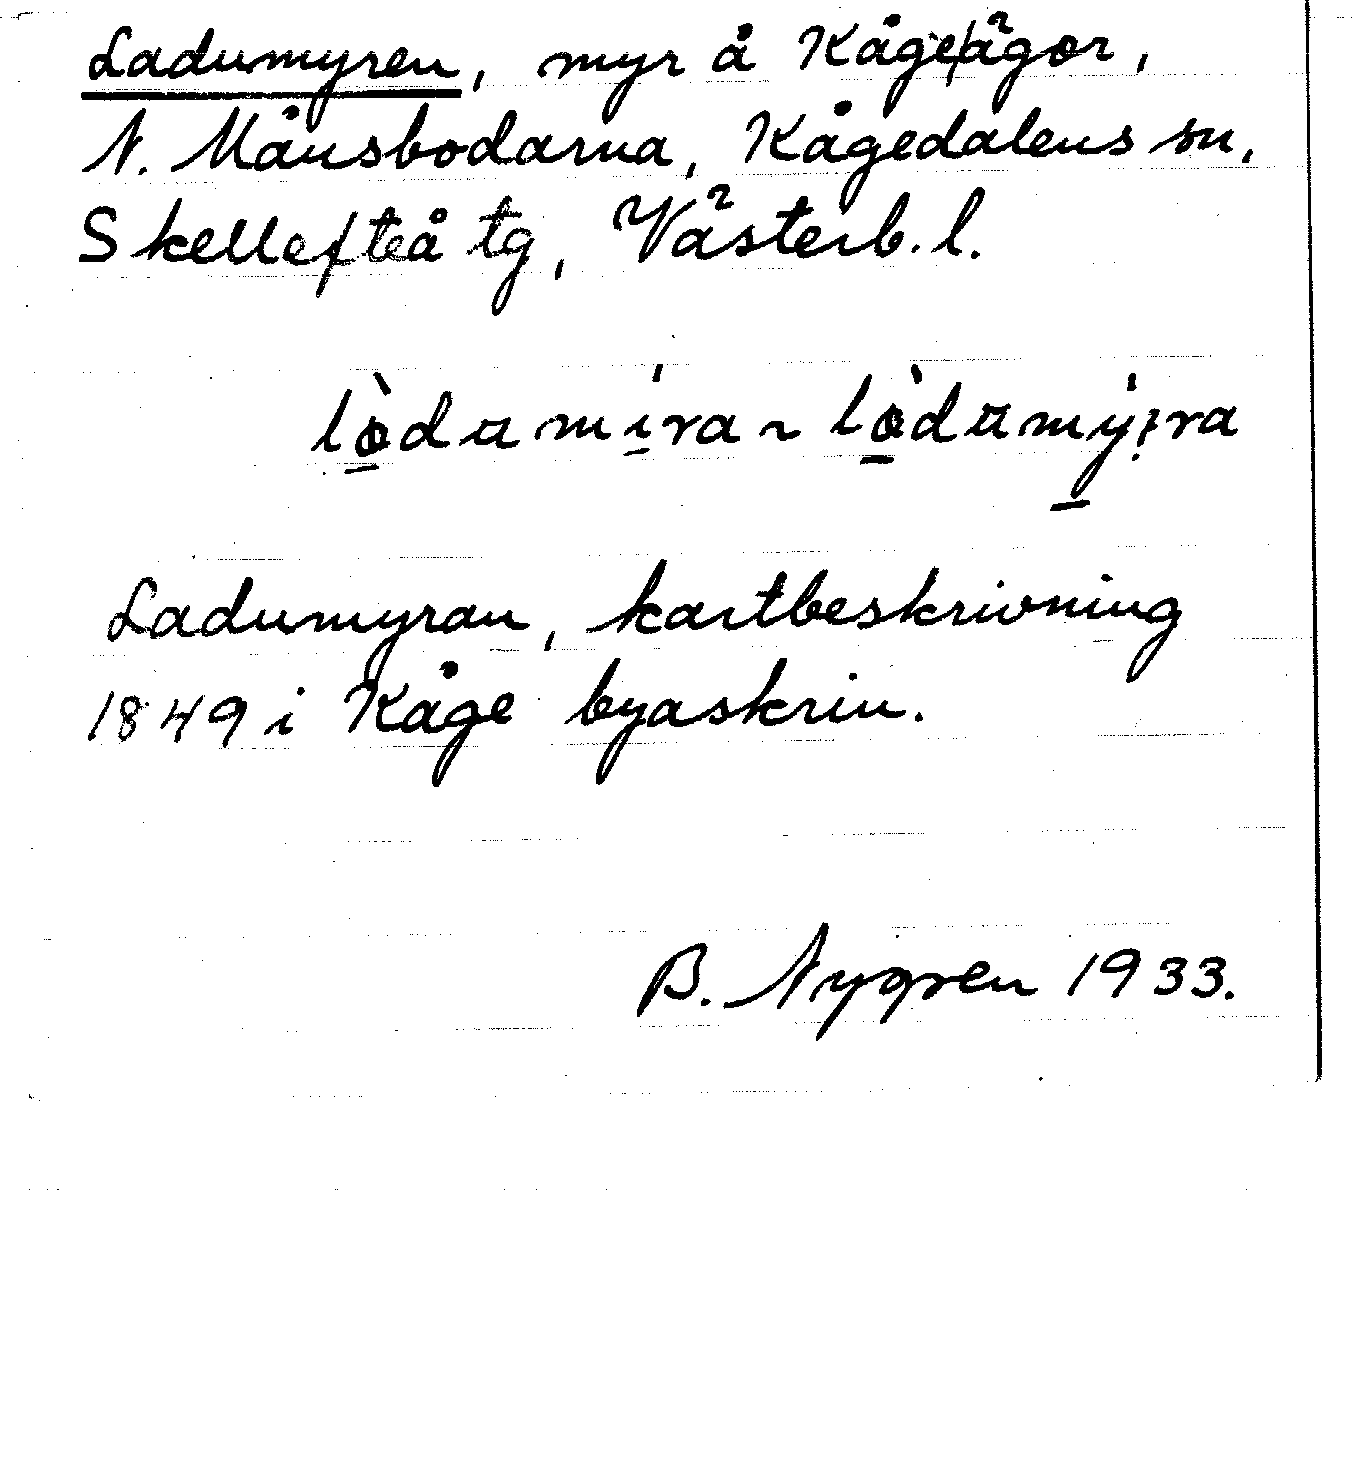 Ladumyren, myr å Kåge/ägor,
N. Månsbodarna, Kågedalens sn,
Skellefteå tg, Västerb. l.
lò̱dαmi̱̍ra ~ lò̱dαmy̱̍i̭ra
Ladumyran, kartbeskrivning
1849 i Kåge byaskrin.
B. Nygren 1933.